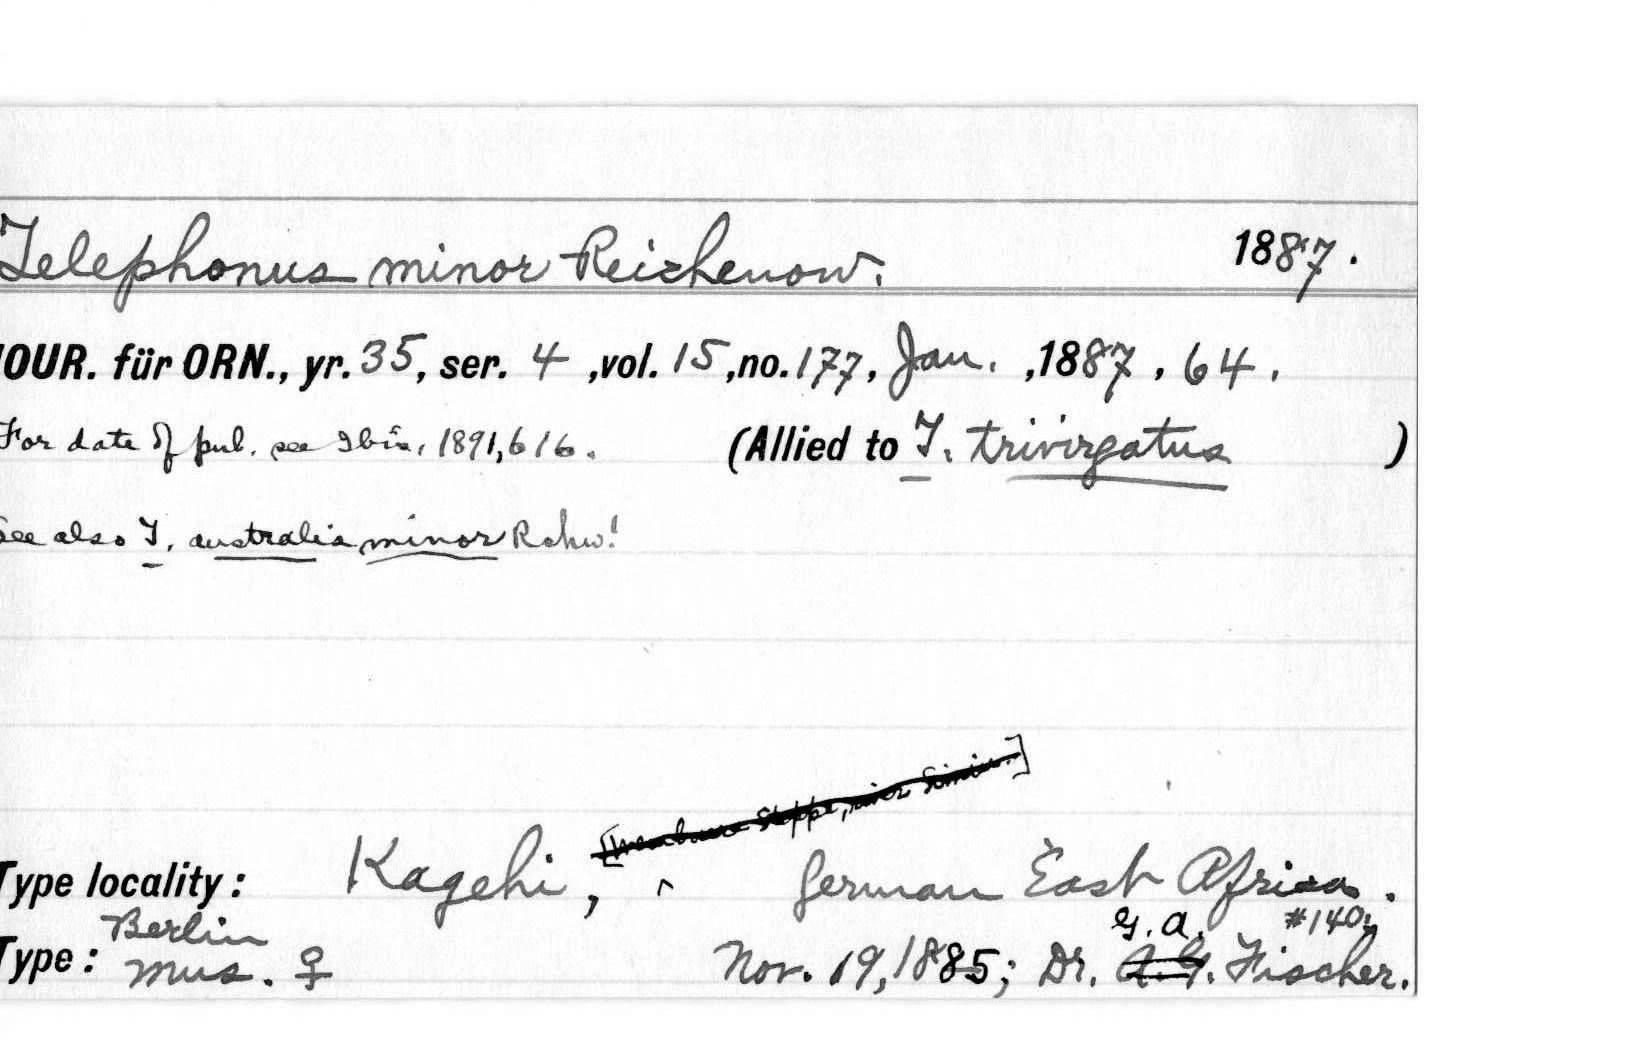 Telephonus minor Reichenow. 1887.
JOUR. für ORN., yr. 35, ser. 4 ,vol. 15 ,no. 177, Jan. ,1887 , 64 .
For date of pub. see Ibis, 1891, 616. (Allied to T. trivirgatus )
See also T. australis minor Rchw!
Steppe, river Simiu.]
Type locality: Kagehi, ^ German East Africa.
Berlin G. A. #140;
Type: Mus. ♀ Nov. 19, 1885; Dr. A. G. Fischer.